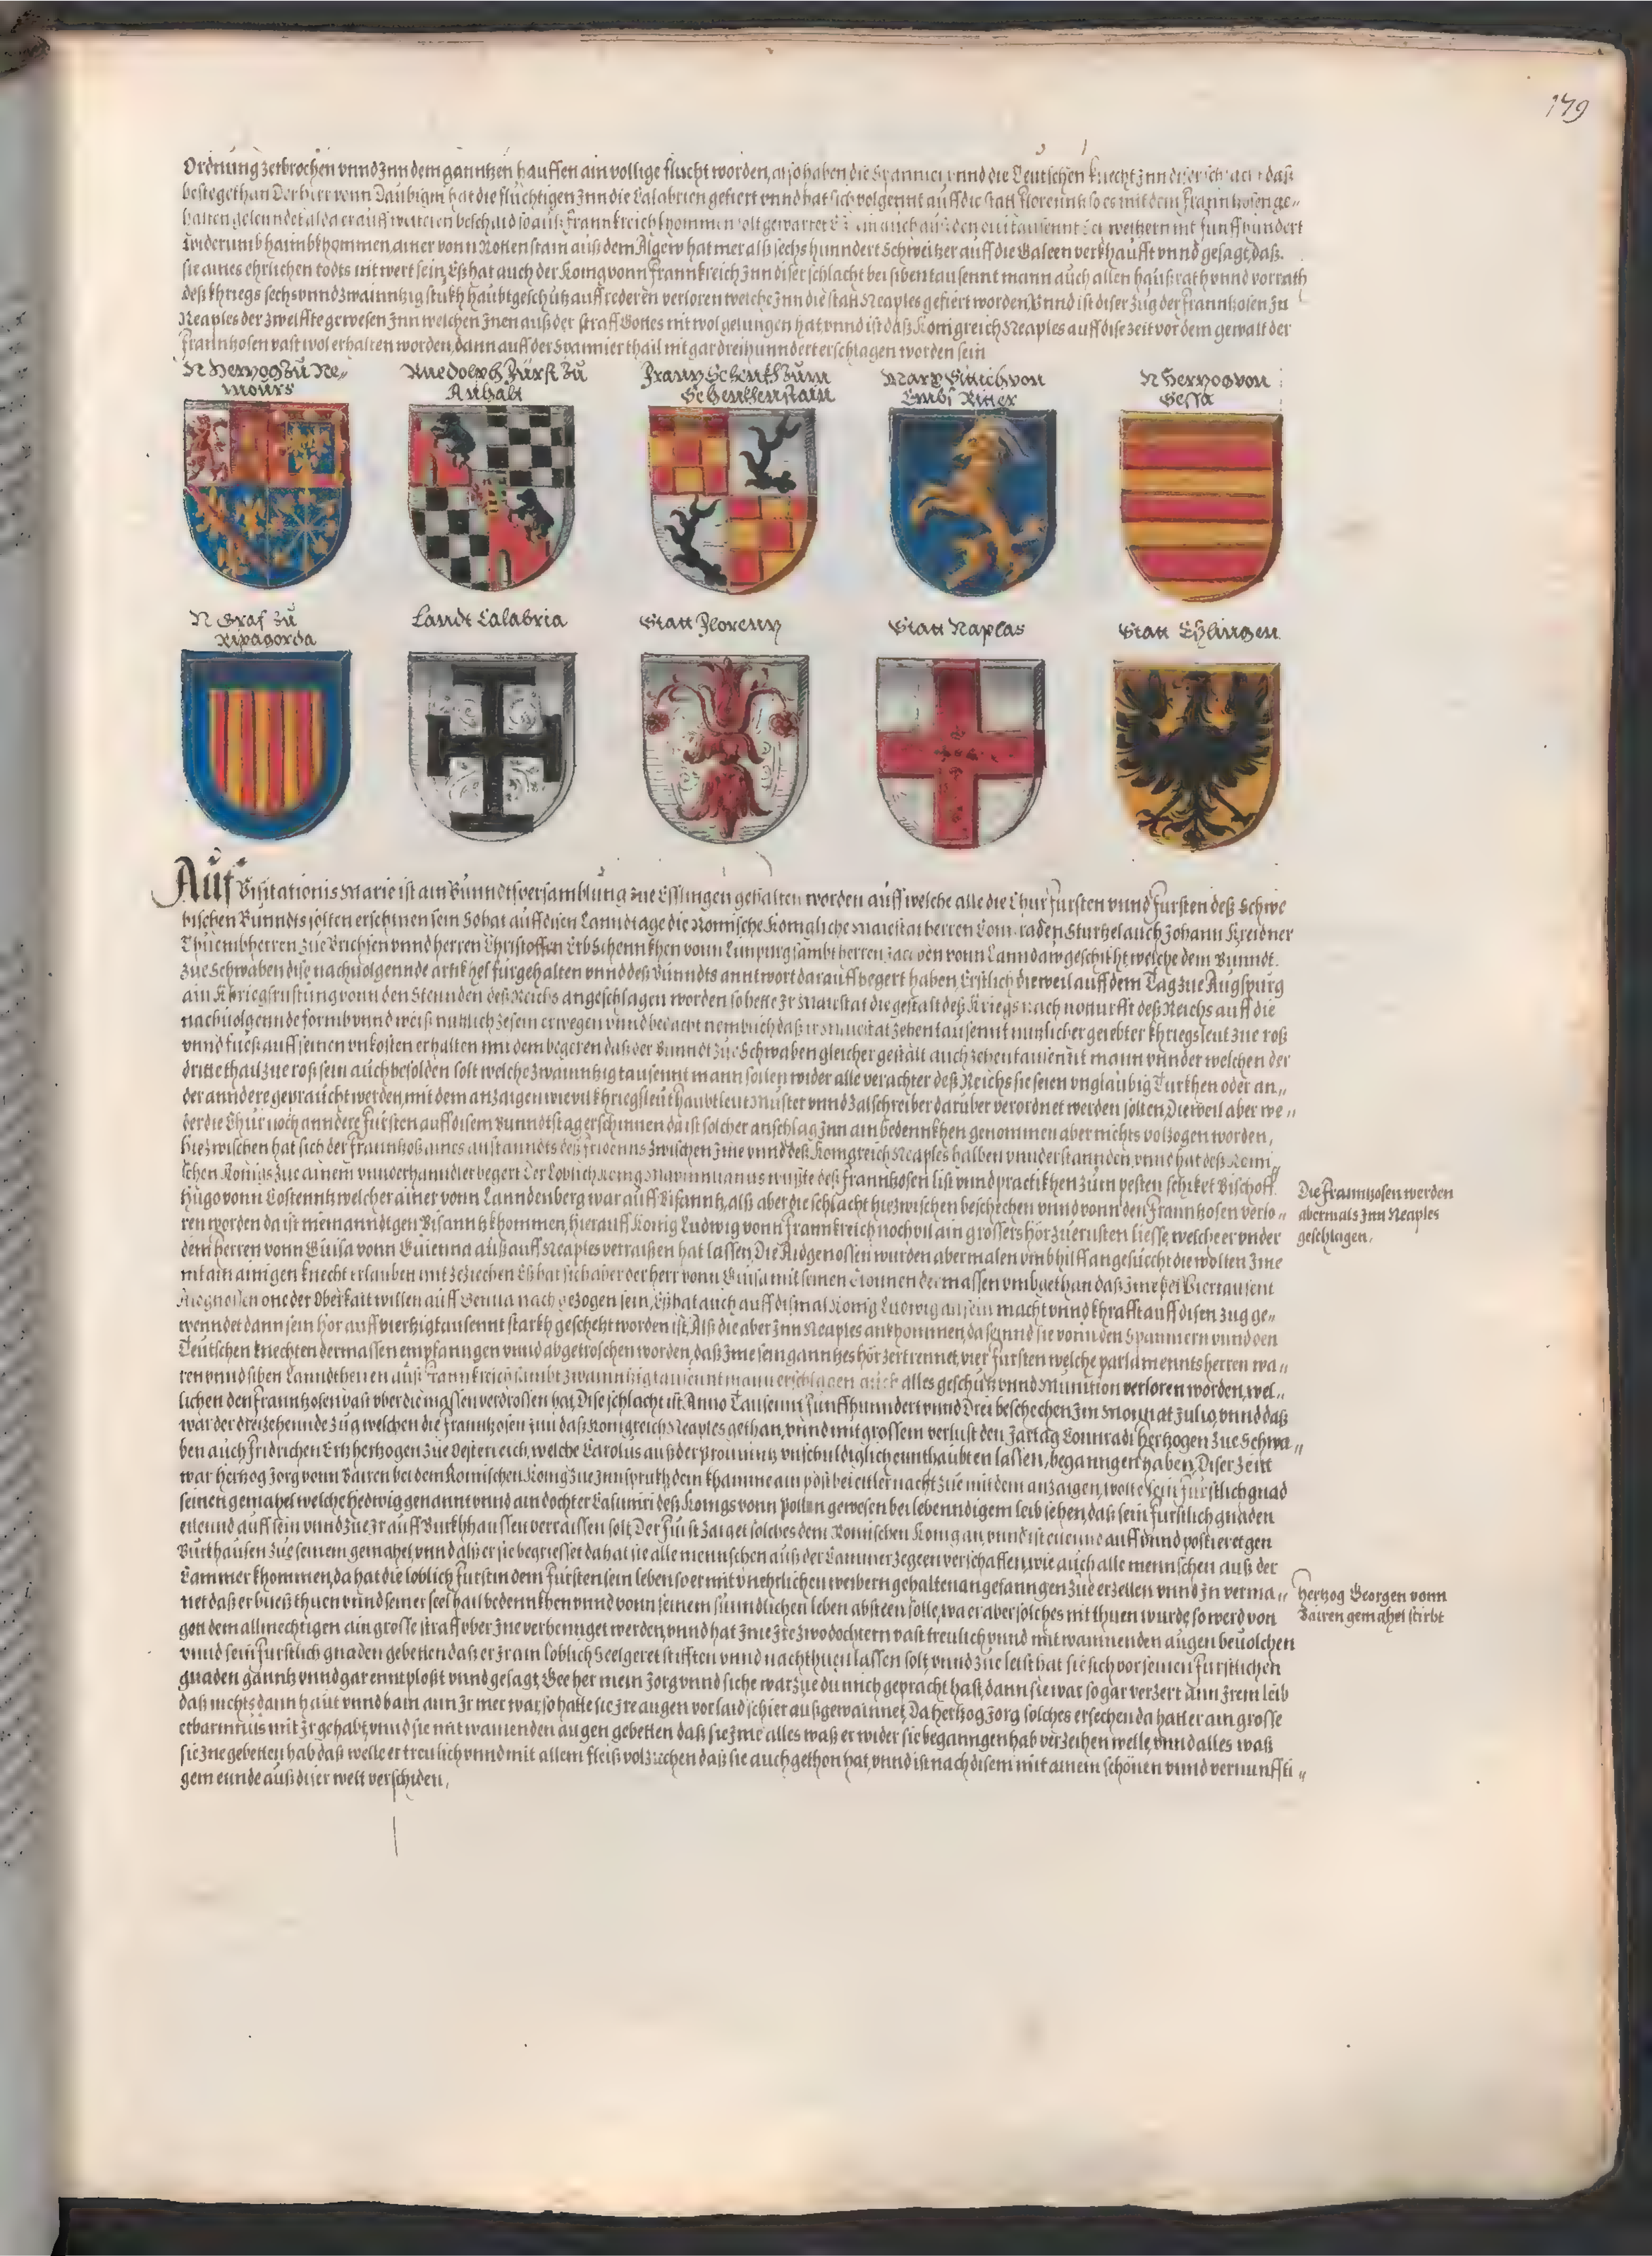 179
Ordnung zerbrochen vnnd Inn dem ganntzen hauffen ain vollige flucht worden, also haben die Spannier vnnd die Teutschen knecht Inn diser daß
beste gethan Der herr vonn Daubigni hat die fluchtigen Inn die Calabrien gefiert vnnd hat sich volgennt auff die statt Florentz so es mit dem Frannhosen ge„
halten gelenndet alda er auff weiteren beschaid so auß Frannkreich khommen solt gewartet mit funffhundert
widerumb haimbkhommen, ainer vonn Rottenstain auß dem Algew hat mer alß sechs hunndert Schweitzer auff die Galeen verkhaufft vnnd gesagt, daß.
sie aines ehrlichen todts nit wert sein, Eß hat auch der Konig vonn Frannkreich Inn diser schlacht bei siben tausennt mann auch allen haußrath vnnd vorrath
deß khriegs sechs vnnd zwainntzig stukh haubtgeschutz auff rederen verloren welche Inn die statt Neaples gefiert worden, Vnnd ist diser zug der Frannhosen zu
Neaples der zwelffte gewesen Inn welchen Inen auß der straff Gottes nit wol gelungen hat, vnnd ist daß Konigreich Neaples auff dise zeit vor dem gewalt der
Frannhosen vast wol erhalten worden, dann auff der Spannier thail nit gar dreihunndert erschlagen worden sein
N Hertzog zu Ne„
mours
Ruedolph Fürst zu
Anhalt
Frantz Schenkh zum
Schenkhenstain
Marx Sittich von
Embs Ritter
N Hertzog von
Sessa
N Graf zu
Ripagorda
Landt Calabria
Statt Florentz
Statt Naplas
Statt Eßlingen
Auf Visitationis Marie ist ain Bunndtsversamblung zue Esslingen gehalten worden auff welche alle die Churfursten vnnd Fursten deß Schwe
bischen Bunndts solten erschinen sein So hat auff disen Lanndtage die Romische Konigliche Maiestat herren Conraden Sturtzel auch Johann Kreidner
Thuembherren zue Brichsen vnnd herren Christoffen Erbschennkhen vonn Limpurg sambt herren vonn Lanndaw geschikht, welche dem Bunndt.
zue Schwaben dise nachuolgennde artikhel furgehalten vnnd deß Bunndts anntwort darauff begert haben, Erstlich dieweil auff dem Tag zue Augspurg
ain Khriegsrustung vonn den Stennden deß Reichs angeschlagen worden so hette Ir Maiestat die gestalt deß Kriegs nach notturfft deß Reichs auff die
nachuolgennde formb vnnd weiß nutzlich ze sein erwegen vnnd bedacht nemblich daß ir Maiestat zehen tausennt nutzlicher geiebter khriegsleut zue roß
vnnd fueß auff seinen vnkosten erhalten mit dem begeren daß der Bunndt zue Schwaben gleicher gestalt auch zehen tausennt mann vnnder welchen der
dritte thail zue roß sein auch besolden solt welche zwainntzig tausennt mann sollen wider alle verachter deß Reichs sie seien vnglaubig Turkhen oder an„
der anndere gepraucht werden, mit dem anzaigen wie vil khriegsleut haubtleut Muster vnnd Zalschreiber daruber verordnet werden solten, Dieweil aber we„
der die Chur noch anndere Fursten auff disem Bunndtstag erschinnen da ist solcher anschlag Inn ain bedennkhen genommen aber nichts volzogen worden,
hiezwischen hat sich der Frannhoß aines anstanndts deß fridenns zwischen Ime vnnd deß Konigreich Neaples halben vnnderstannden, vnnd hat deß Romi„
schen Konigs zue ainem vnnderhanndler begert Der Loblich Konig Maximilianus wußte deß Frannhosen list vnnd practikhen zum besten schiket Bischoff
Hugo vonn Costenntz welcher ainer vonn Lanndenberg war auff Bisanntz, alß aber die schlacht hiezwischen beschechen vnnd vonn den Frannhosen verlo„
ren worden da ist niemanndt gen Bisanntz khommen, hierauff Konig Ludwig vonn Frannkreich noch vil ain grossers hör zuerusten liesse, welche er vnder
dem herren vonn Guisa vonn Guienna auß auff Neaples verraißen hat lassen, Die Aidgenossen wurden abermalen vmb hilff angesuecht die wolten Ime
nit ain ainigen knecht erlauben mit zeziechen Eß hat sich aber der herr vonn Guisa mit seinen Cronnen dermassen vmbgethan daß Ime bei viertausent
Aidgnossen one der Oberkait willen auff Genua nachgezogen sein, Eß hat auch auff dismal Konig Ludwig all sein macht vnnd khrafft auff disen zug ge„
wenndet dann sein hör auff viertzig tausennt starkh geschetzt worden ist, Alß die aber Inn Neaples ankhommen, da seinnd sie vonn den Spanniern vnnd den
Teutschen knechten dermassen empfanngen vnnd abgetroschen worden, daß Ime sein ganntzes hör zertrennet, vier Fursten welche parlamennts herren wa„
ren vnnd siben Lanndtherren auß Frannkreich sambt zwainntzig tausennt mann erschlagen auch alles geschutz vnnd Munition verloren worden, wel„
lichen den Frannhosen vast vber die massen verdrossen hat, Dise schlacht ist Anno Tausennt funffhunndert vnnd Drei beschechen Im Monat Julio, vnnd daß
war der dreizehennde zug welchen die Frannhosen Inn daß Konigreich Neaples gethan, vnnd mit grossem verlust den Jartag Connradi Hertzogen zue Schwa„
ben auch Fridrichen Ertzhertzogen zue Osterreich, welche Carolus auß der Prouintz vnschuldiglich ennthaubten lassen, beganngen haben, Diser zeitt
war Hertzog Jorg vonn Bairen bei dem Romischen Konig zue Innsprukh dem khamme ain post bei eitler nacht zue mit dem anzaigen, wolte sein furstlich gnad
seinen gemahel welche Hedwig genannt vnnd ain dochter Casimiri deß Konigs vonn Pollen gewesen bei lebenndigem leib sehen, daß sein furstlich gnaden
eilennd auff sein vnnd zue Ir auff Burkhhaussen verraissen solt, Der Furst zaiget solches dem Romischen Konig an, vnnd ist eilennd auff vnnd postieret gen
Burkhausen zue seinem gemahel, vnnd alß er sie begriesset da hat sie alle mennschen auß der Cammer zegeen verschaffen, wie auch alle mennschen auß der
Cammer khommen, da hat die loblich furstin dem Fursten sein leben so er mit vnehrlichen weibern gehalten angefanngen zue erzellen vnnd In verma„
net daß er bueß thuen vnnd seiner seel hail bedennkhen vnnd vonn seinem sunndlichen leben absteen solle, wa er aber solches nit thuen wurde, so werd von
got dem allmechtigen ain grosse straff vber Ine verhennget werden, vnnd hat Ime Ire zwo dochtern vast treulich vnnd mit wainnenden augen beuolchen
vnnd sein furstlich gnaden gebetten daß er Ir ain loblich Seelgeret stifften vnnd nachthuen lassen solt, vnnd zue letst hat sie sich vor seinen furstlichen
gnaden ganntz vnnd gar enntploßt vnnd gesagt, See her mein Jorg vnnd siche warzue du mich gepracht hast, dann sie war so gar verzert ann Irem leib
daß nichts dann haut vnnd bain ann Ir mer war, so hatte sie Ire augen vor laid schier außgewainnet, Da Hertzog Jorg solches ersechen da hatt er ain grosse
erbarmnus mit Ir gehabt, vnnd sie mit wainenden augen gebetten daß sie Ime alles waß er wider sie beganngen hab verzeihen welle, vnnd alles waß
sie Ine gebetten hab daß welle er treulich vnnd mit allem fleiß volziechen daß sie auch gethon hat, vnnd ist nach disem mit ainem schönen vnnd vernunffti„
gem ennde auß diser welt verschiden,
Die Frannhosen werden
abermals Inn Neaples
geschlagen.
Hertzog Georgen vonn
Bairen gemahel stirbt